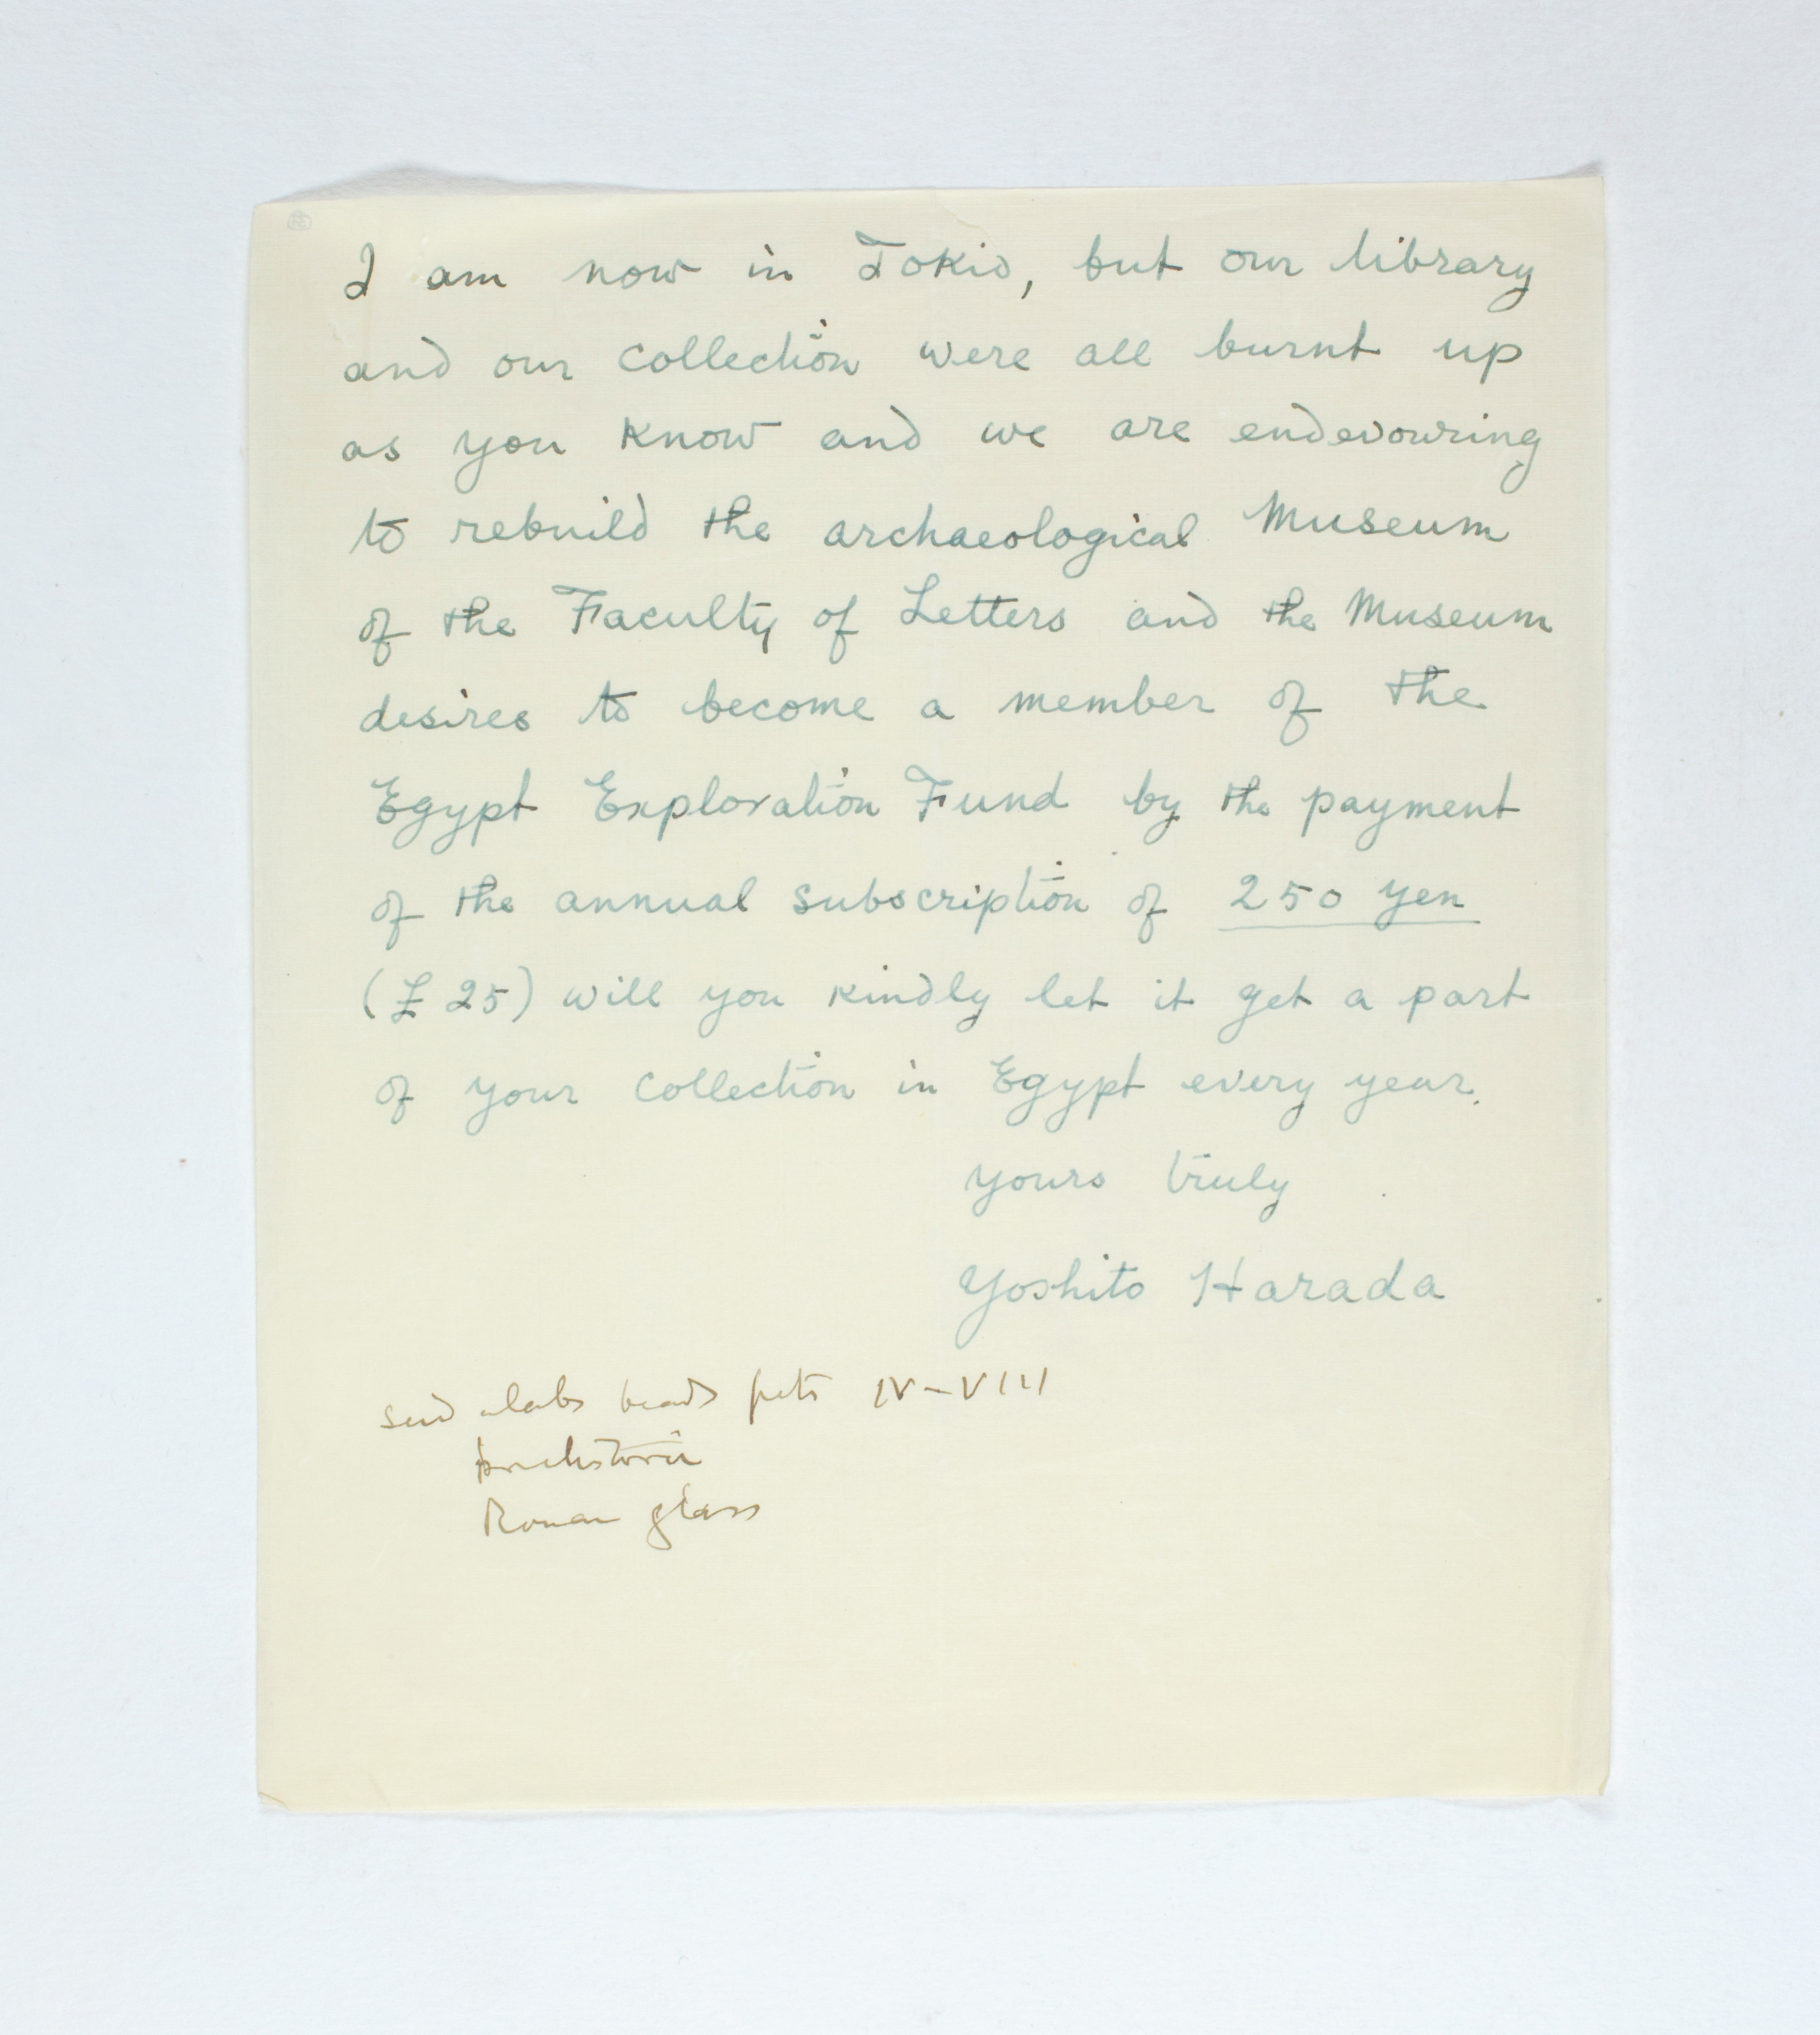 I am now in Tokio, but our library
and our collection were all burnt up
as you know and we are endevouring
to rebuild the archaeological Museum
of the Faculty of Letters and the Museum
desires to become a member of the
Egypt Exploration Fund by the payment
of the annual subscription of 250 yen
(£ 25) will you kindly let it get a part
of your collection in Egypt every year.
yours truly
Yoshito Harada
send beads pots IV-VIII
prehistoric
Roman glass